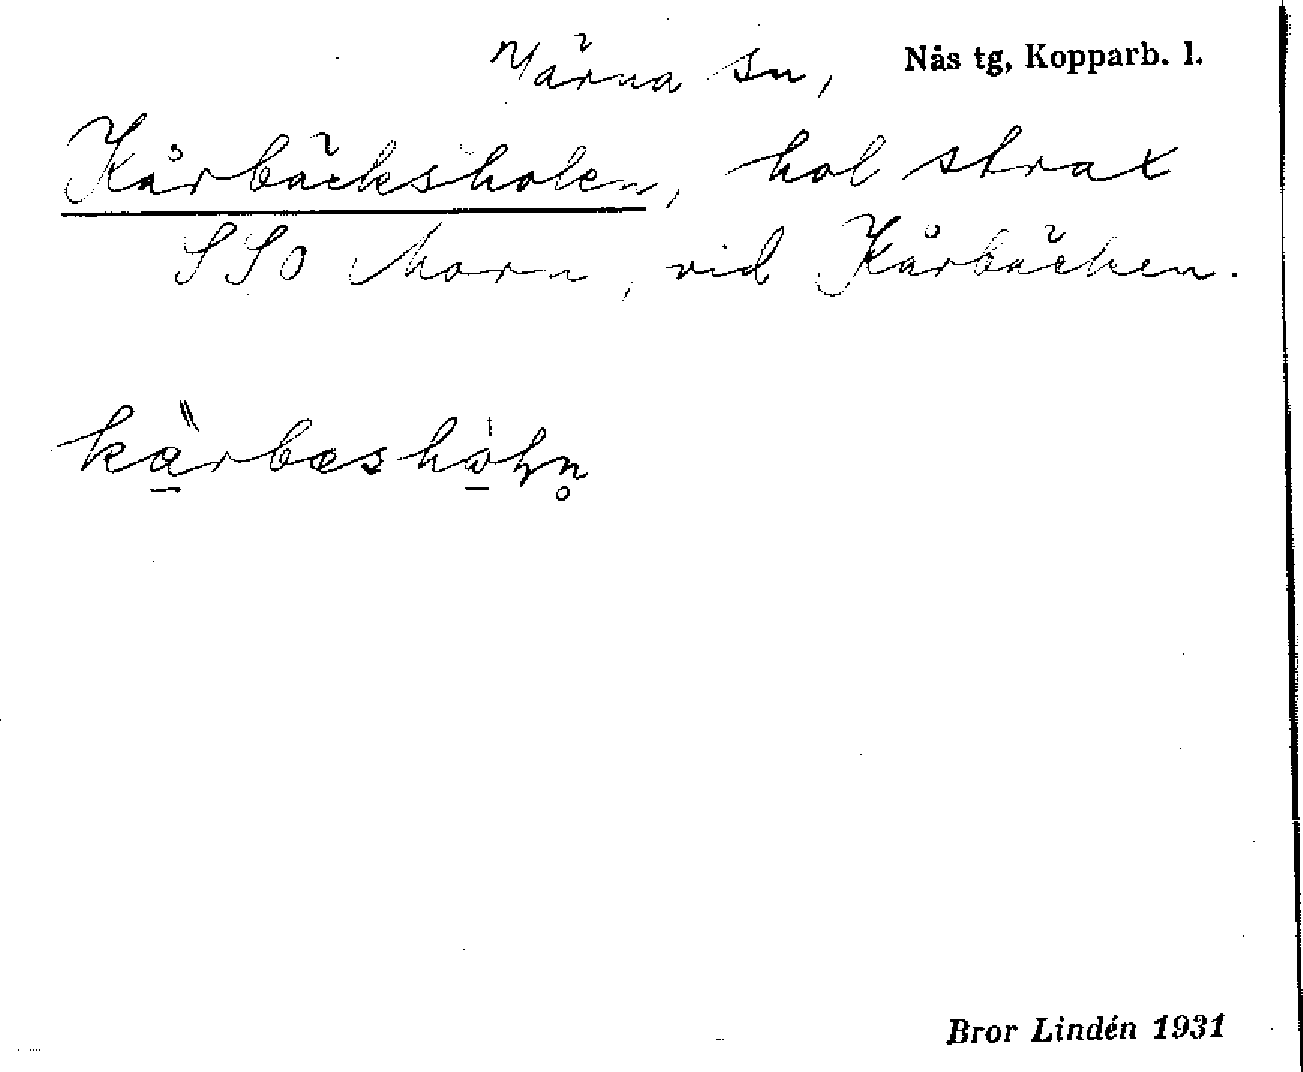 Järna sn, Nås tg, Kopparb. l.
Kårbäcksholen, hol strax
SSO Morn, vid Kårbäcken.
Bror Lindén 1931